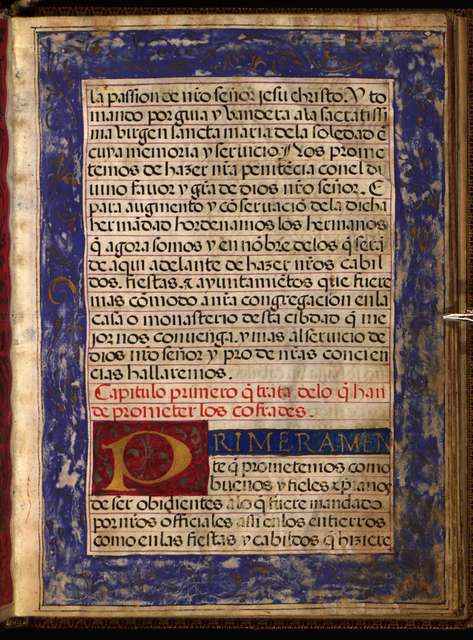 la passion de nr̃o señor jesu christo. Y to
mando por guia y bandera ala sacratissi
ma virgen sancta maria dela soledad ẽ
cuya memoria y seruicio. Nos prome
temos de hazer nr̃a penitẽcia con el di
uino fauor y gr̃a de dios nr̃o señor. E
para augmento y cõseruaciõ dela dicha
hermãdad hordenamos los hermanos
q̃ agora somos y en nõbre delos q̃ serã
de aqui adelante de hazer nr̃os cabil
dos. fiestas. ⁊ ayuntamiẽtos que fuere
mas cõmodo a nr̃a congregacion en la
casa o monasterio desta cibdad q̃ me
jor nos conuenga. y mas al seruicio de
dios nr̃o señor y pro de nr̃as concien
cias hallaremos.
Capitulo primero q̃ trata delo q̃ han
de prometer los cofrades.
PRIMERAMEN
te q̃ prometemos como
buenos y fieles xp̃ianos
de ser obidientes a lo q̃ fuere mandado
por nr̃os officiales assi en los entierros
como en las fiestas y cabildos q̃ hiziere